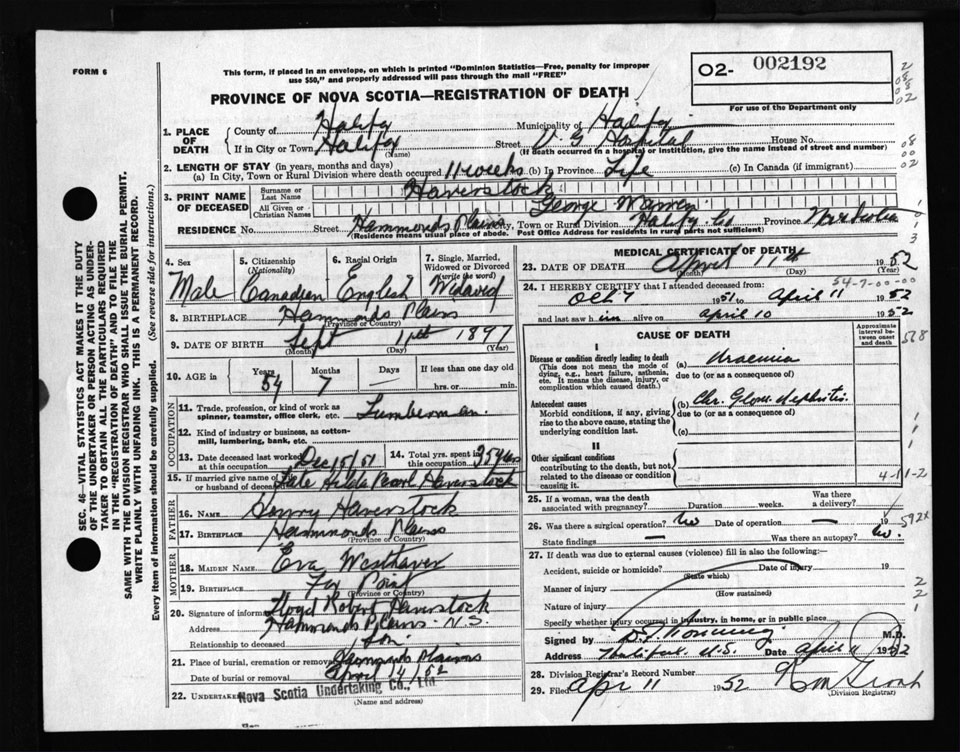 FORM 6
This form, if placed in an envelope, on which is printed "Dominion Statistics—Free, penalty for improper
use $50," and properly addressed will pass through the mail "FREE"
02- 002192
For use of the Department only
PROVINCE OF NOVA SCOTIA—REGISTRATION OF DEATH
1. PLACE OF DEATH
County of Halifax Municipality of Halifax
If in City or Town Halifax Street V. G. Hospital House No.
(Name) (If death occurred in a hospital or institution, give the name instead of street and number)
2. LENGTH OF STAY (in years, months and days)
(a) In City, Town or Rural Division where death occurred 11 weeks (b) In Province Life (c) In Canada (if immigrant)
3. PRINT NAME OF DECEASED
Surname or Last Name Haverstock
All Given or Christian Names George Warren
RESIDENCE No. Street Hammonds Plains City, Town or Rural Division Halifax Co Province Nova Scotia
(Residence means usual place of abode. Post Office Address for residents in rural parts not sufficient)
4. Sex Male
5. Citizenship (Nationality) Canadian
6. Racial Origin English
7. Single, Married, Widowed or Divorced (write the word) Widowed
8. BIRTHPLACE Hammonds Plains
(Province or Country)
9. DATE OF BIRTH Sept 11th 1897
(Month) (Day) (Year)
10. AGE in Years 54 Months 7 Days — If less than one day old
hrs. or min.
OCCUPATION
11. Trade, profession, or kind of work as
spinner, teamster, office clerk, etc. Lumberman.
12. Kind of industry or business, as cotton-
mill, lumbering, bank, etc.
13. Date deceased last worked at this occupation Dec 15/51
14. Total yrs. spent in this occupation 35 yrs
15. If married give name of wife or husband of deceased Late Hilda Pearl Haverstock
FATHER
16. NAME Haverstock
17. BIRTHPLACE Hammonds Plains
(Province or Country)
MOTHER
18. MAIDEN NAME Eva Westhaver
19. BIRTHPLACE Fox Point
(Province or Country)
20. Signature of informant Floyd Robert Haverstock
Address Hammonds Plains N.S.
Relationship to deceased Son
21. Place of burial, cremation or removal Hammonds Plains
Date of burial or removal April 14/52
22. Undertaker Nova Scotia Undertaking Co., Ltd
(Name and address)
MEDICAL CERTIFICATE OF DEATH
23. DATE OF DEATH April 11th 1952
(Month) (Day) (Year)
54-7-00-00
24. I HEREBY CERTIFY that I attended deceased from:
Oct 7 1951 to April 11 1952
and last saw him alive on April 10 1952
CAUSE OF DEATH
Approximate interval between onset and death
I
Disease or condition directly leading to death
(This does not mean the mode of
dying, e.g., heart failure, asthenia,
etc. It means the disease, injury, or
complication which caused death.)
(a) Uraemia
due to (or as a consequence of)
Antecedent causes
Morbid conditions, if any, giving
rise to the above cause, stating the
underlying condition last.
(b) Chr. Glom. Nephritis.
due to (or as a consequence of)
(c)
II
Other significant conditions
contributing to the death, but not
related to the disease or condition
causing it.
4-11-2
25. If a woman, was the death associated with pregnancy? Duration weeks. Was there a delivery?
26. Was there a surgical operation? No Date of operation — 19
592x
State findings — Was there an autopsy? No.
27. If death was due to external causes (violence) fill in also the following:
Accident, suicide or homicide? Date of injury 19
(State which)
Manner of injury
(How sustained)
Nature of injury
Specify whether injury occurred in industry, in home, or in public place
Signed by M.D.
Address Halifax N.S. Date April 11 1952
28. Division Registrar's Record Number
29. Filed Apr 11 1952
(Division Registrar)
SEC. 46—VITAL STATISTICS ACT MAKES IT THE DUTY
OF THE UNDERTAKER OR PERSON ACTING AS UNDER-
TAKER TO OBTAIN ALL THE PARTICULARS REQUIRED
IN THE "REGISTRATION OF DEATH" AND TO FILE THE
SAME WITH THE DIVISION REGISTRAR WHO SHALL ISSUE THE BURIAL PERMIT.
WRITE PLAINLY WITH UNFADING INK. THIS IS A PERMANENT RECORD.
Every item of information should be carefully supplied. (See reverse side for instructions.)